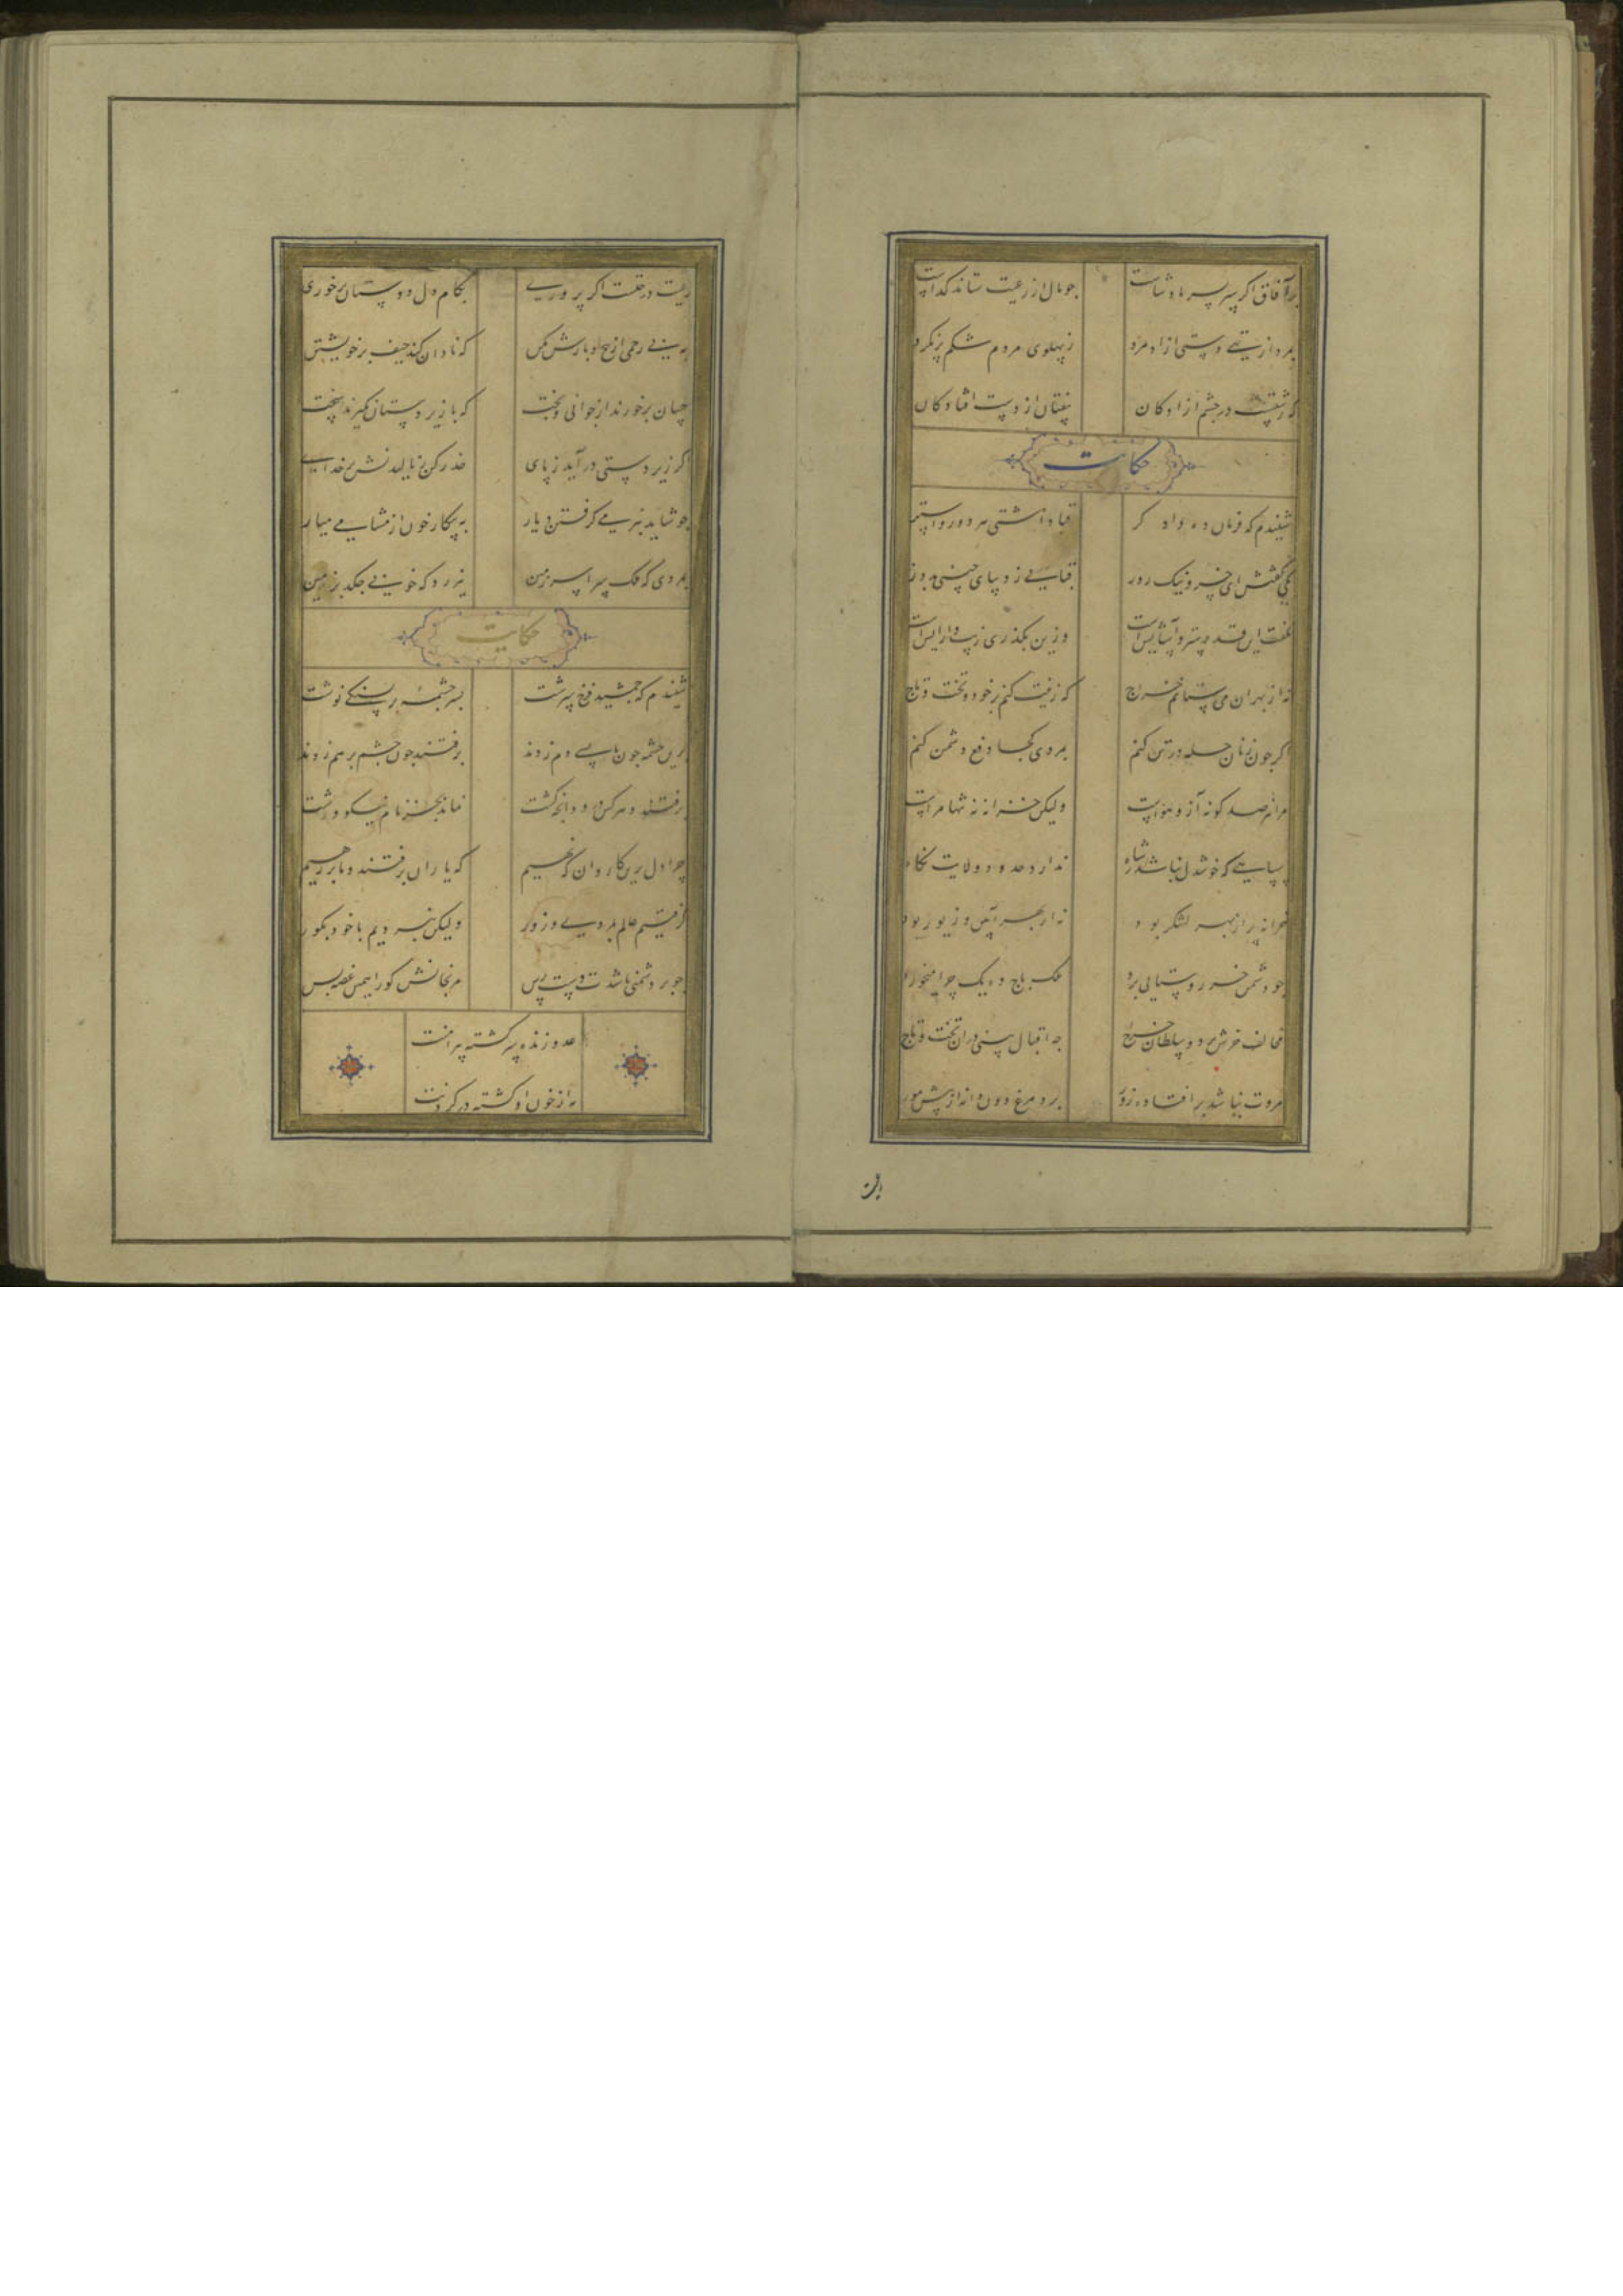 بر آفاق اگر سر بسر پادشاست
جو مال از رعیت ستاند کداست
بمرد از تهی دستی ازاد مرد
ز پهلوی مردم شکم پر نکرد
که زشتست در چشم ازادکان
بیفتادن از دست افتادکان
حکایت
شنیدم که فرمان دهی دادکر
قبا داشتی هر دو رو استر
یکی کفتش ای خسرو نیک روز
قبایی ز دیبای چینی بدوز
بکفت این قدر ستر و آسایش است
وزین بکذری زیب و ارایش است
نه از بهر ان می ستانم خراج
که زینت کنم بر خود و تخت و تاج
اکر جون زنان حله در تن کنم
بمردی کجا دفع دشمن کنم
مرا هم ز صد کونه آز و هواست
ولیکن خزانه نه تنها مراست
سپاهی که خوشدل نباشد ز شاه
ندارد حدود ولایت نکاه
خزانه پر از بهر لشکر بود
نه از بهر آیین و زیور بود
جو دشمن خر روستایی برد
ملک باج و ده یک چرا میخورد
مخالف خرش برد و سلطان خراج
جه اقبال بینی در ان تخت و تاج
مروت نباشد بر افتاده زور
برد مرغ دون دانه از پیش مور
رعیت درختست اکر پروری
بکام دل دوستان بر خوری
به بی رحمی از بیخ و بارش مکن
که نادان کند حیف بر خویشتن
کسان بر خورند از جوانی و بخت
که با زیردستان نکیرند سخت
اکر زیردستی در آید ز پای
حذر کن ز نالیدنش بر خدای
جو شاید بنرمی کرفتن دیار
به پیکار خون از مشامی میار
بمردی که ملک سراسر زمین
نیرزد که خونی جکد بر زمین
حکایت
شنیدم که جمشید فرخ سرشت
بسرجشمه بر بسنکی نوشت
برین جشمه جون ما بسی دم زدند
برفتند جون جشم بر هم زدند
برفتند و هر کس درود انچه کشت
نماند بجز نام نیکو و زشت
چرا دل برین کاروان که نهیم
که یاران برفتند و ما بر رهیم
کرفتیم عالم بمردی و زور
ولیکن نبردیم با خود بکور
جو بر دشمنی باشدت دست رس
مرنجانش کو را همین غصه بس
عدو زنده سرکشته پیرامنت
به از خون او کشته در کردنت